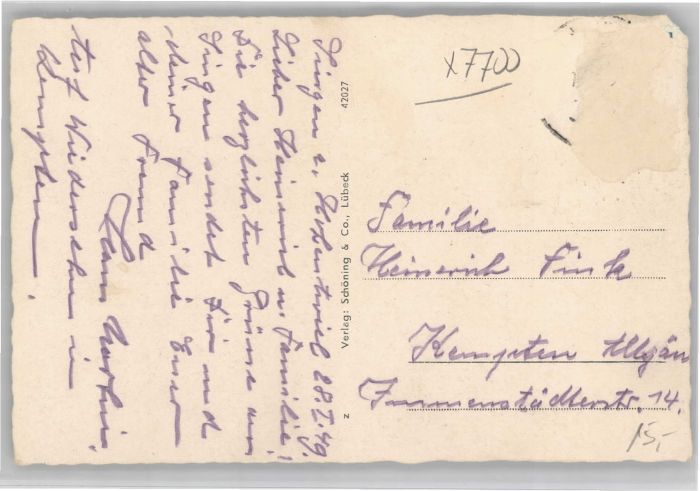 Singen a. Hohentwiel 28.I.49.
Lieber Heinerich u. Familie!
Die herzlichsten Grüsse aus
Singen sendet Dir und
deiner Familie Euer
alter Freund
Hans
Auf Wiedersehen in
Kempten.
z Verlag: Schöning & Co., Lübeck 42027
x7700
Familie
Heinerich Fink
Kempten Allgäu
Immenstädterstr. 14.
15,-